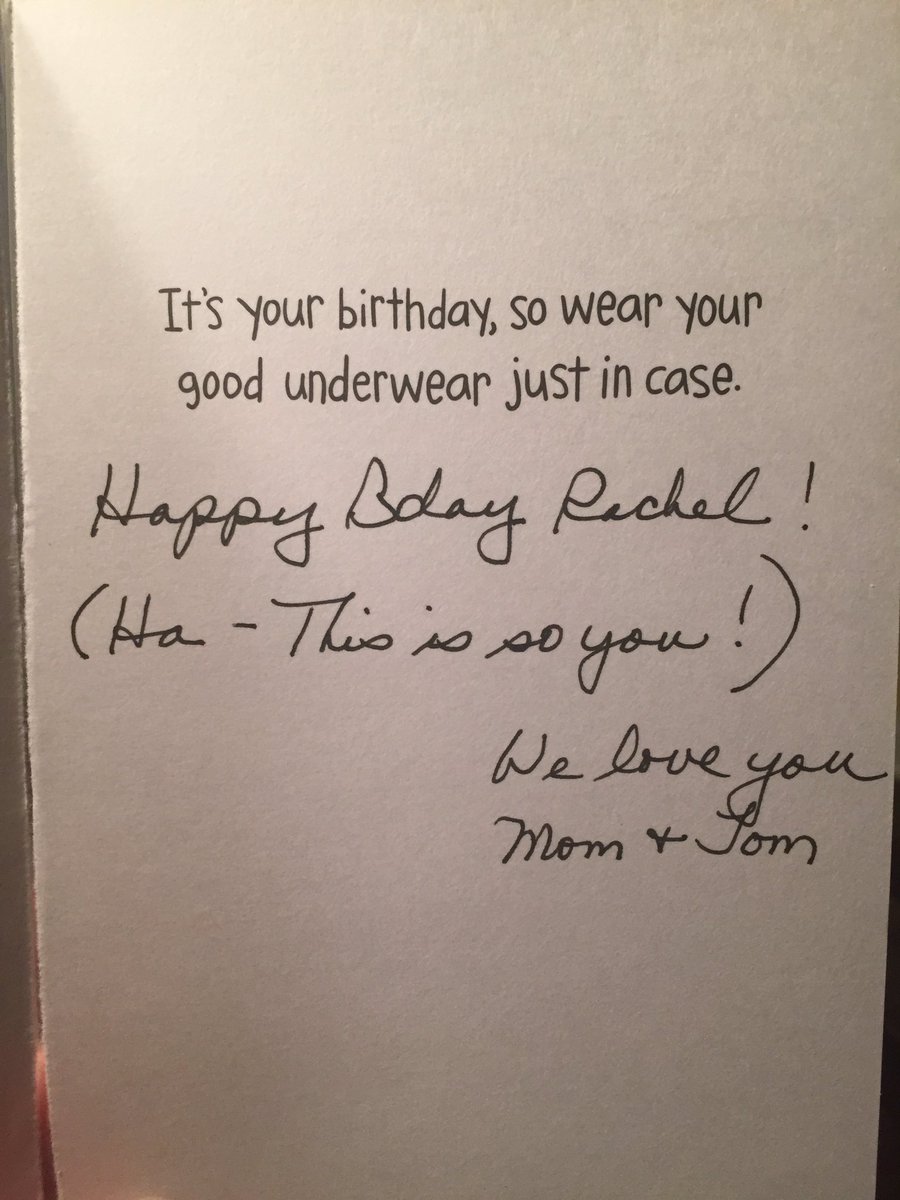 It's your birthday, so wear your
good underwear just in case.
Happy Bday Rachel!
(Ha - This is so you!)
We love you
Mom + Tom